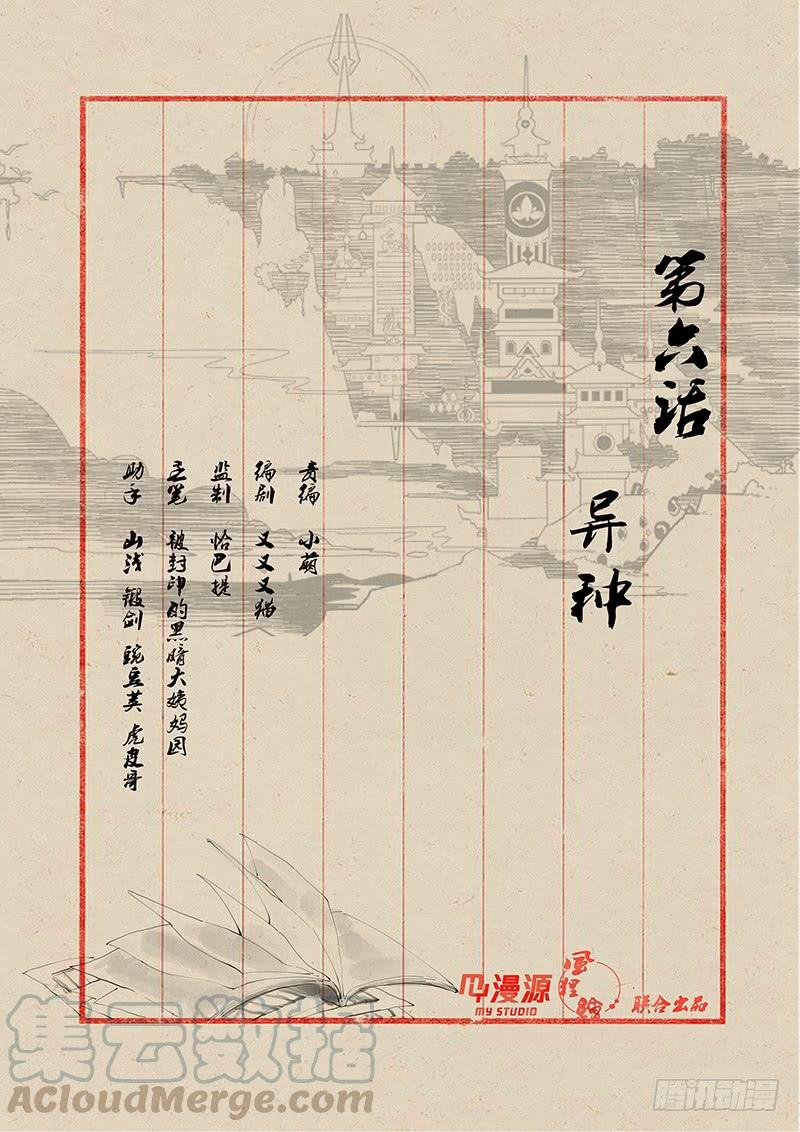 第六话
异种
责编 小萌
编剧 又又又猫
监制 恰巴提
主笔 被封印的黑暗大姨妈园
助手 山浅 锻剑 豌豆荚 虎皮哥
漫源
MY STUDIO
联合出品
集云数据
ACloudMerge.com
腾讯动漫